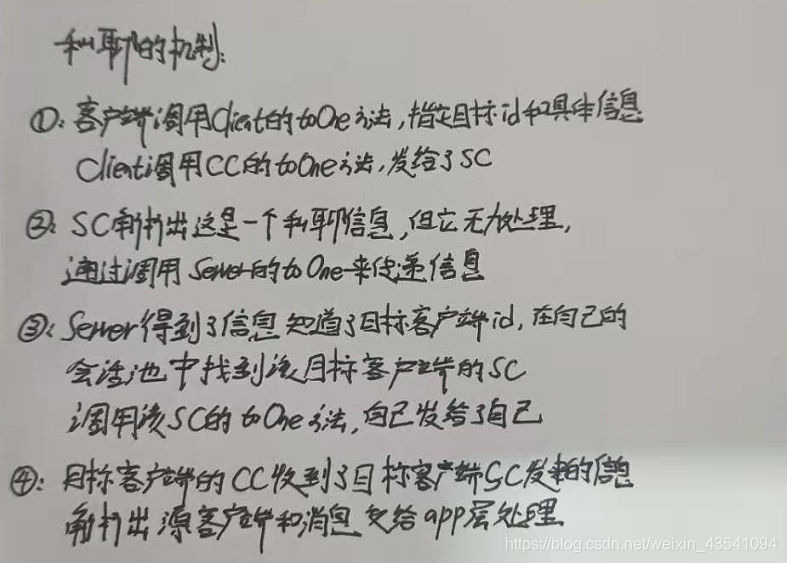 私聊的机制:
①: 客户端调用Client的toOne方法,指定目标id和具体信息
Client调用CC的toOne方法,发给了SC
②: SC解析出这是一个私聊信息,但它无力处理,
通过调用Server的toOne来传递信息
③: Server得到了信息 知道了目标客户端id, 在自己的
会话池中找到该目标客户端的SC
调用该SC的toOne方法,自己发给了自己
④: 目标客户端的CC收到了目标客户端SC发来的信息
解析出源客户端和消息 交给app层处理
https://blog.csdn.net/weixin_43541094